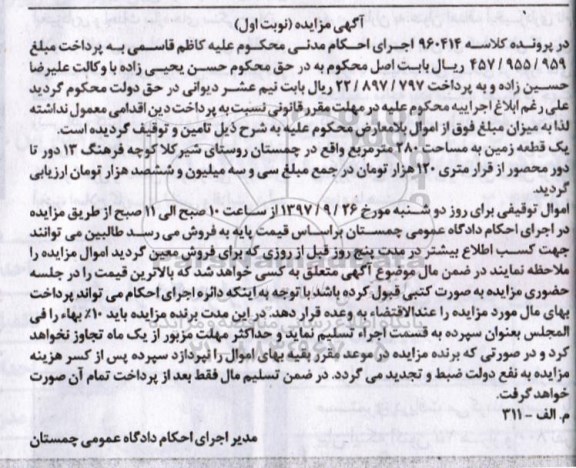 آگهی مزایده (نوبت اول)
در پرونده کلاسه ۹۶۰۴۱۴ اجرای احکام مدنی محکوم علیه کاظم قاسمی به پرداخت مبلغ
۹۵۹ / ۹۵۵ / ۴۵۷ ریال بابت اصل محکوم به در حق محکوم حسن یحیی زاده با وکالت علیرضا
حسین زاده و به پرداخت ۷۹۷ / ۸۹۷ / ۲۲ ریال بابت نیم عشر دیوانی در حق دولت محکوم گردید
علی رغم ابلاغ اجراییه محکوم علیه در مهلت مقرر قانونی نسبت به پرداخت دین اقدامی معمول نداشته
لذا به میزان مبلغ فوق از اموال بلامعارض محکوم علیه به شرح ذیل تامین و توقیف گردیده است.
یک قطعه زمین به مساحت ۲۸۰ مترمربع واقع در چمستان روستای شیرکلا کوچه فرهنگ ۱۳ دور تا
دور محصور از قرار متری ۱۲۰ هزار تومان در جمع مبلغ سی و سه میلیون و ششصد هزار تومان ارزیابی
گردید.
اموال توقیفی برای روز دو شنبه مورخ ۲۶ / ۹ / ۱۳۹۷ از ساعت ۱۰ صبح الی ۱۱ صبح از طریق مزایده
در اجرای احکام دادگاه عمومی چمستان براساس قیمت پایه به فروش می رسد طالبین می توانند
جهت کسب اطلاع بیشتر در مدت پنج روز قبل از روزی که برای فروش معین گردید اموال مزایده را
ملاحظه نمایند در ضمن مال موضوع آگهی متعلق به کسی خواهد شد که بالاترین قیمت را در جلسه
حضوری مزایده به صورت کتبی قبول کرده باشد با توجه به اینکه دائره اجرای احکام می تواند پرداخت
بهای مال مورد مزایده را عندالاقتضاء به وعده قرار دهد. در این مدت برنده مزایده باید ۱۰٪ بهاء را فی
المجلس بعنوان سپرده به قسمت اجراء تسلیم نماید و حداکثر مهلت مزبور از یک ماه تجاوز نخواهد
کرد و در صورتی که برنده مزایده در موعد مقرر بقیه بهای اموال را نپردازد سپرده پس از کسر هزینه
مزایده به نفع دولت ضبط و تجدید می گردد. در ضمن تسلیم مال فقط بعد از پرداخت تمام آن صورت
خواهد گرفت.
م. الف - ۳۱۱
مدیر اجرای احکام دادگاه عمومی چمستان